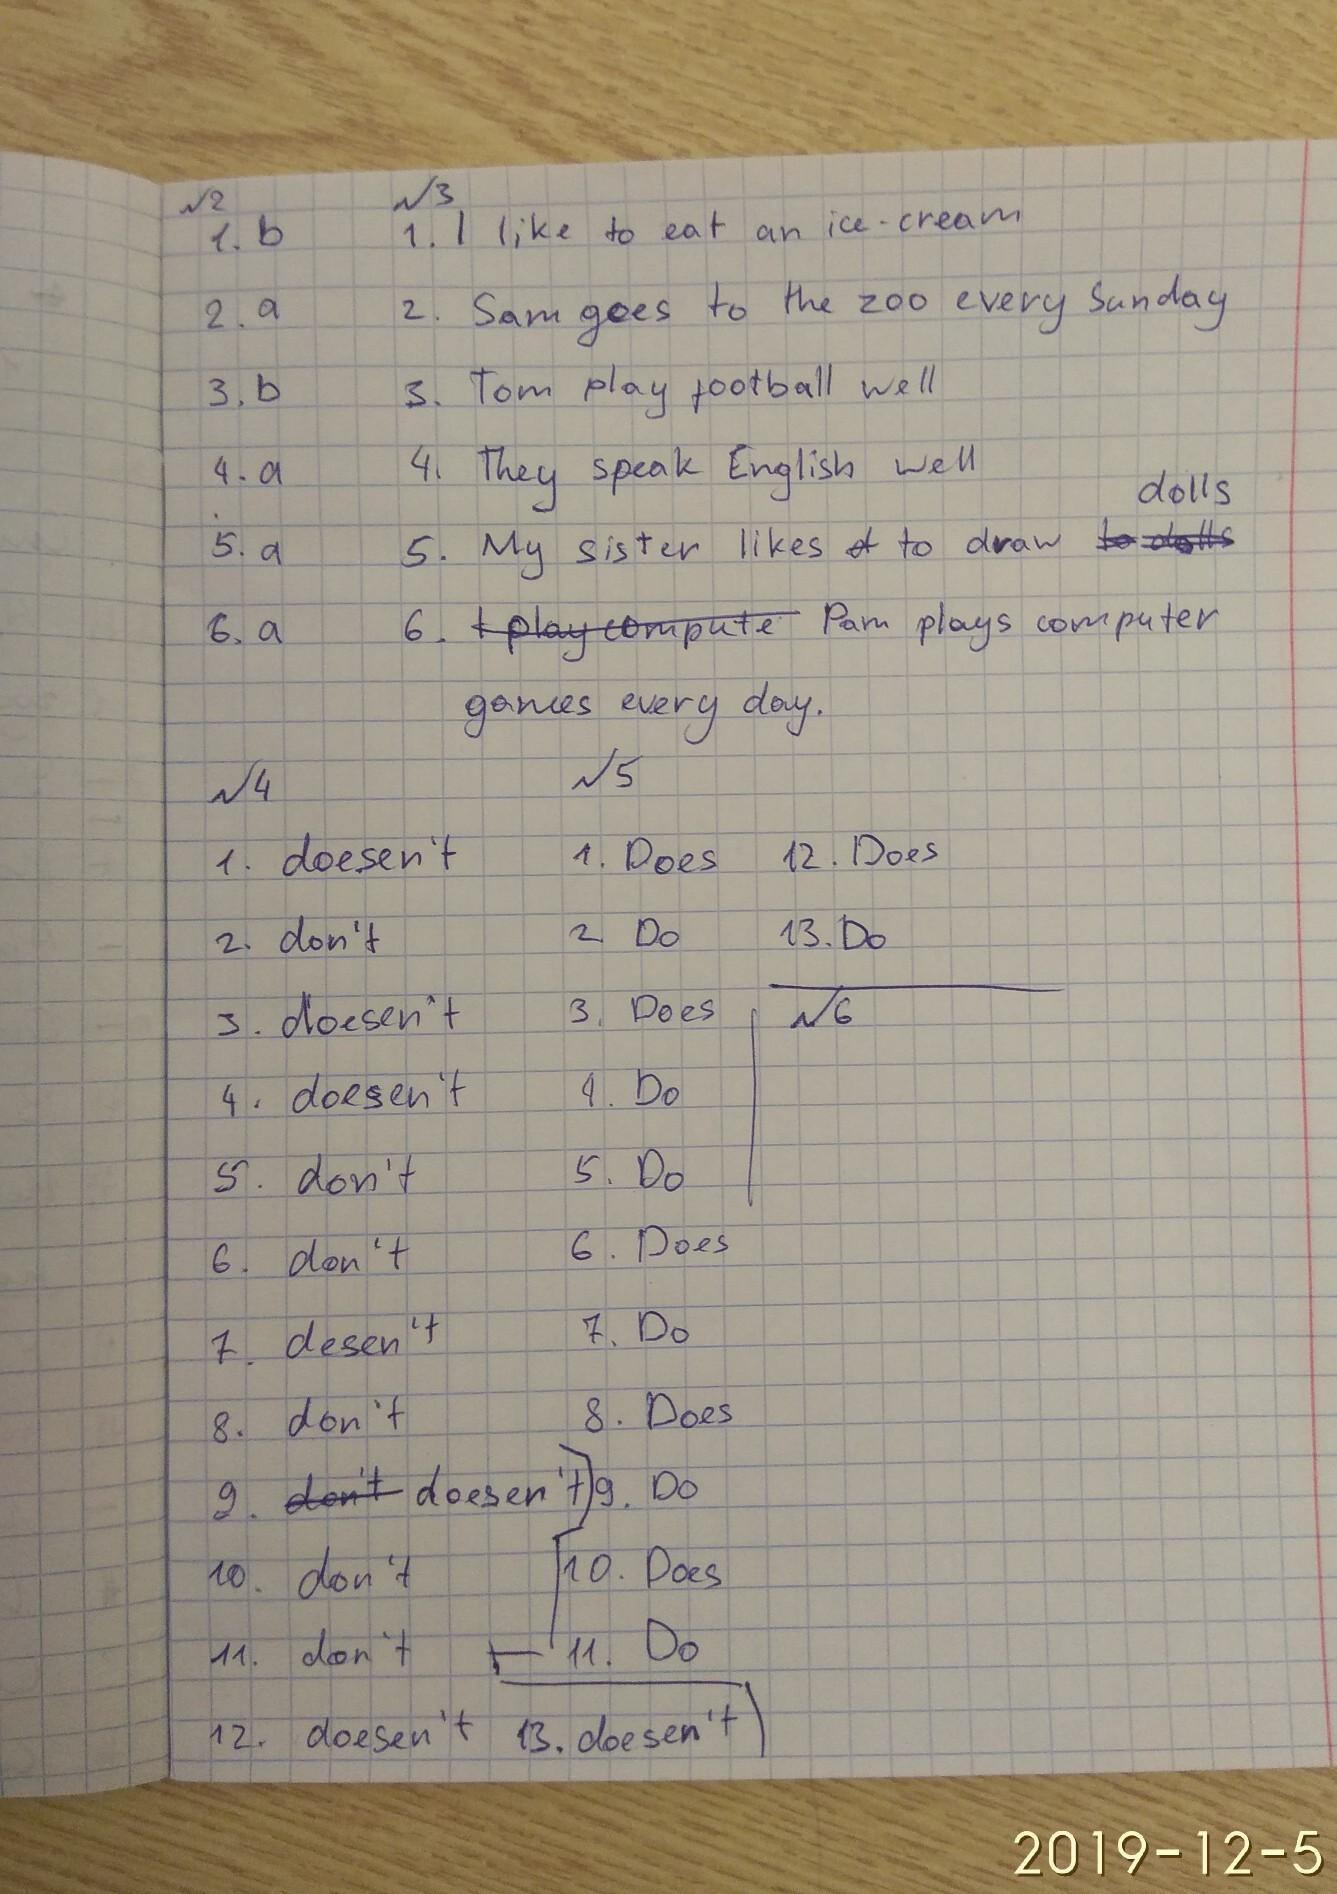 №2
1. b
2. a
3. b
4. a
5. a
6. a
№3
1. I like to eat an ice-cream
2. Sam goes to the zoo every Sunday
3. Tom play football well
4. They speak English well
5. My sister likes to draw dolls
6. I play compute Pam plays computer
games every day.
№4
1. doesen't
2. don't
3. doesen't
4. doesen't
5. don't
6. don't
7. desen't
8. don't
9. don't doesen't
10. don't
11. don't
12. doesen't 13. doesen't
№5
1. Does
2 Do
3. Does
4. Do
5. Do
6. Does
7. Do
8. Does
9. Do
10. Does
11. Do
12. Does
13. Do
№6
2019-12-5